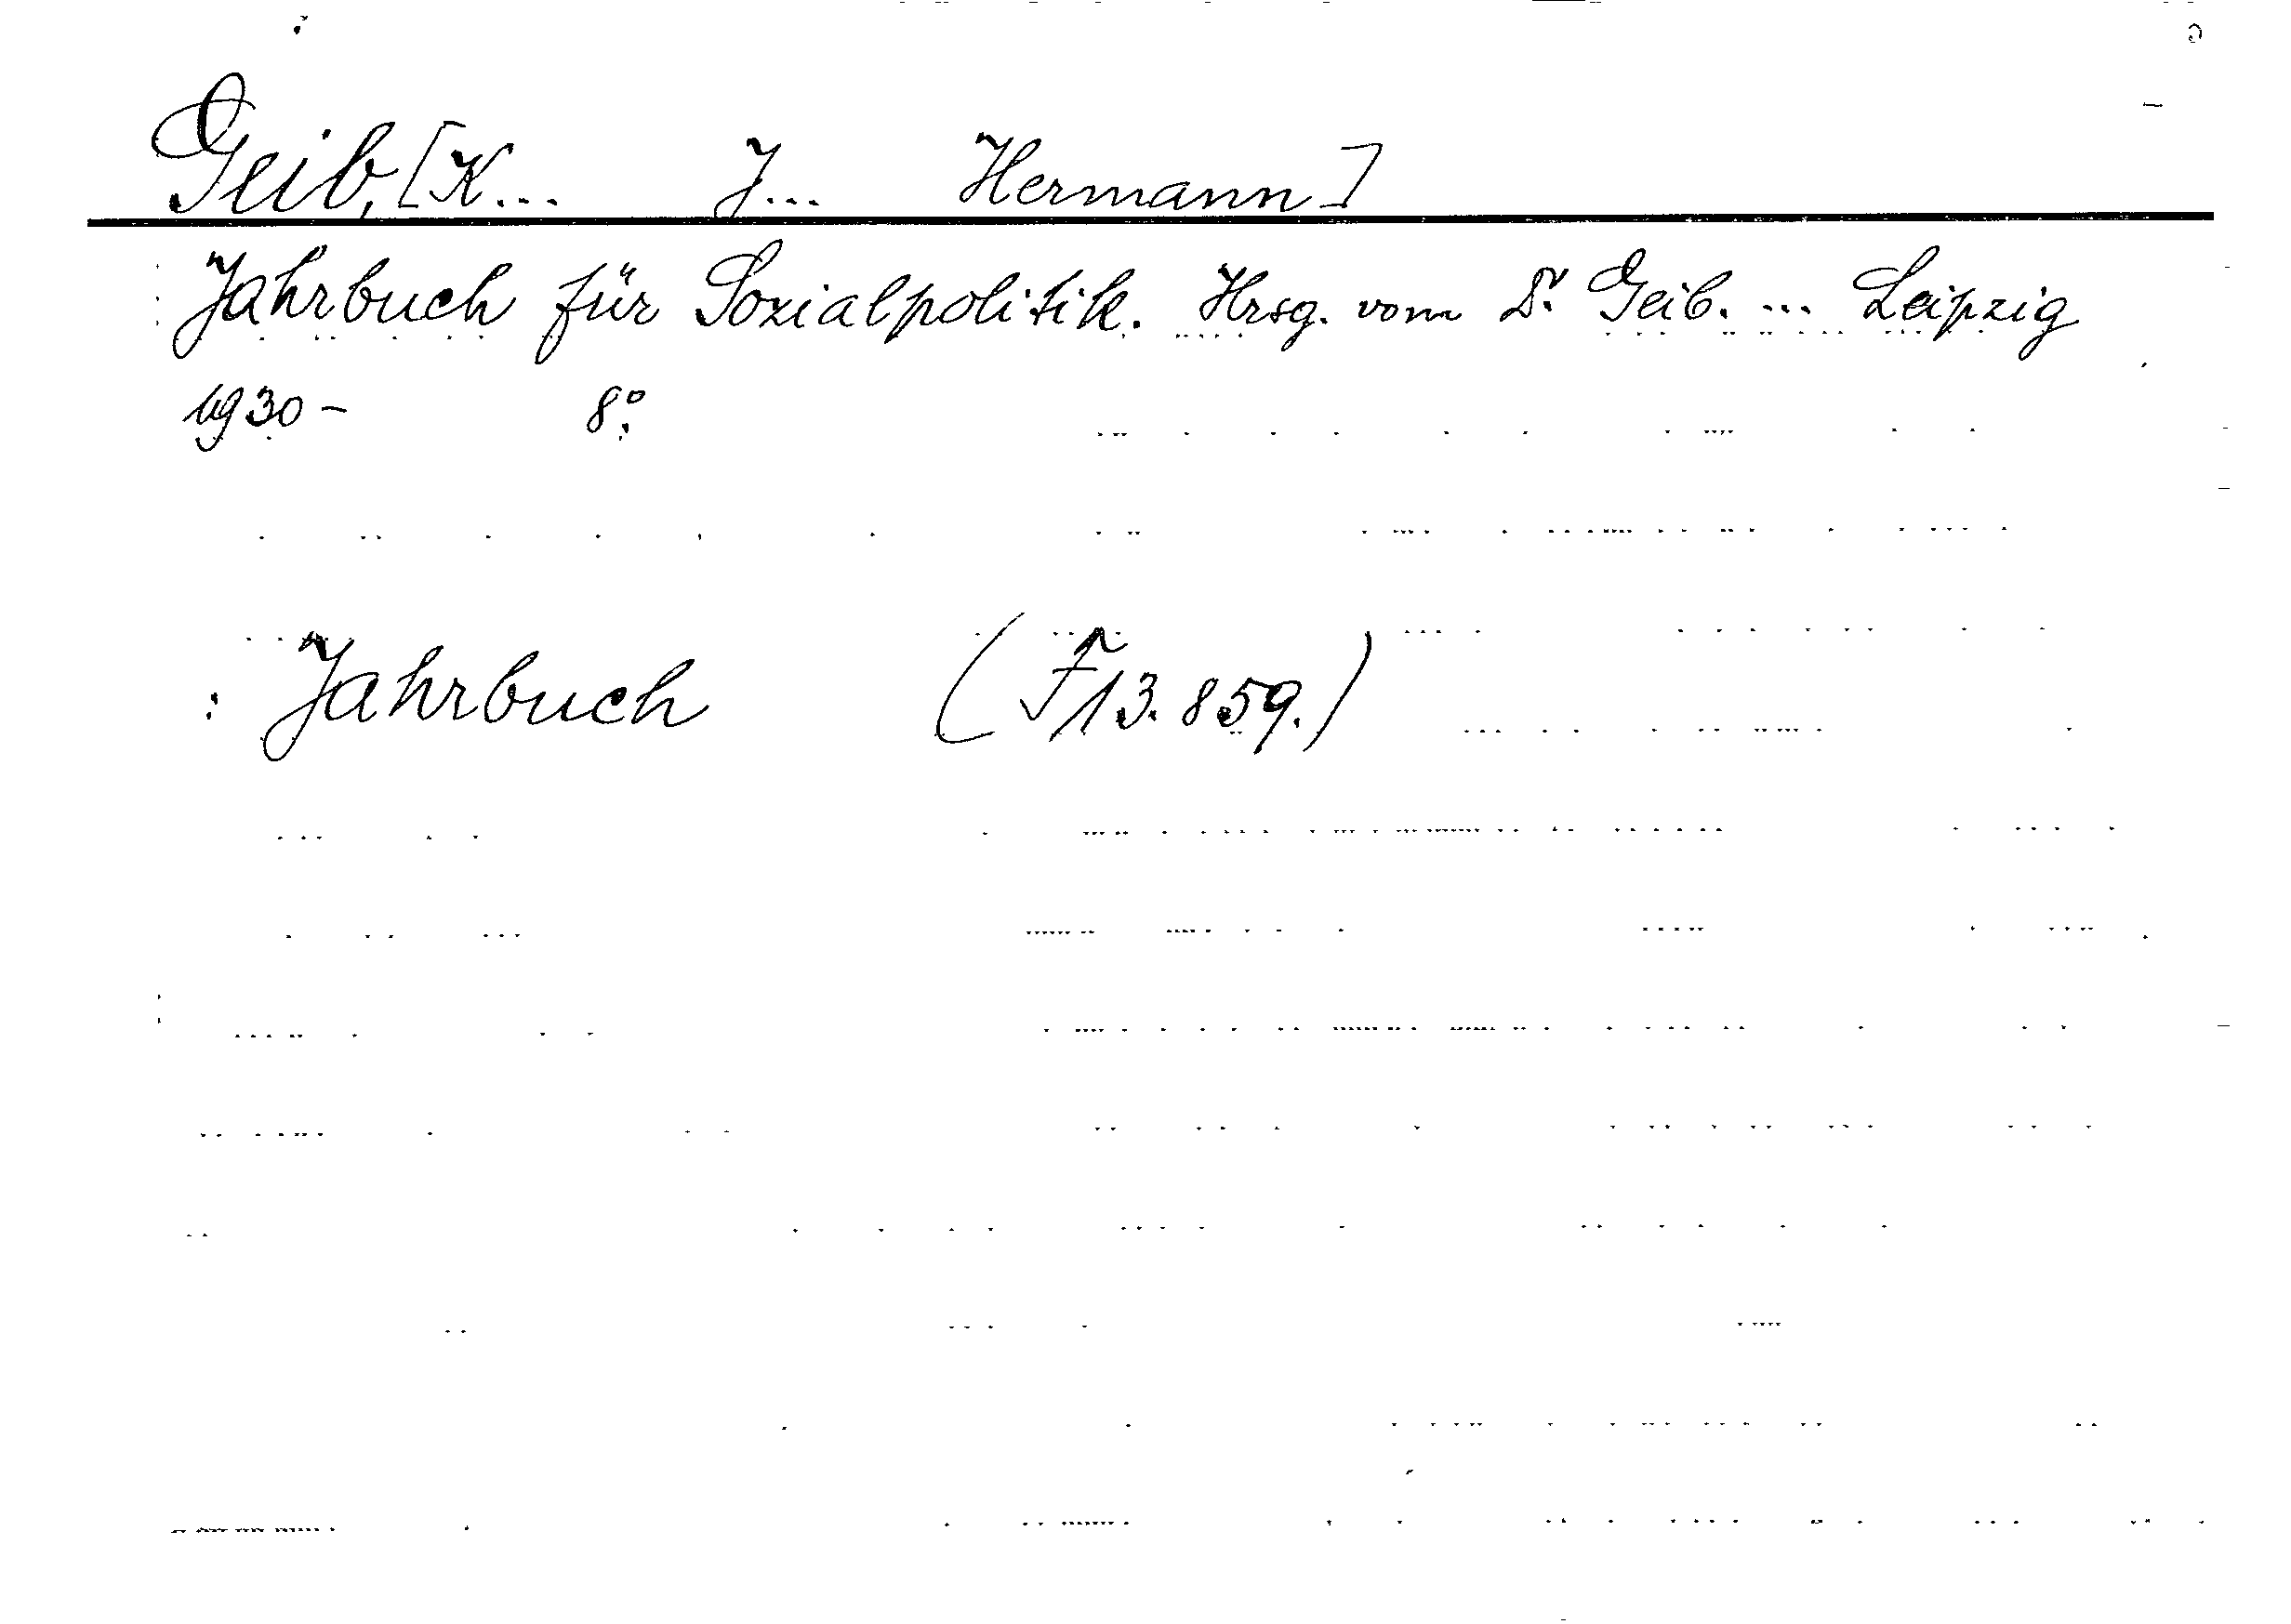 Geib, [K... J... Hermann]
Jahrbuch für Sozialpolitik. Hrsg. vom Dr. Geib. ... Leipzig
1930- 8°.
: Jahrbuch (F 13.859.)